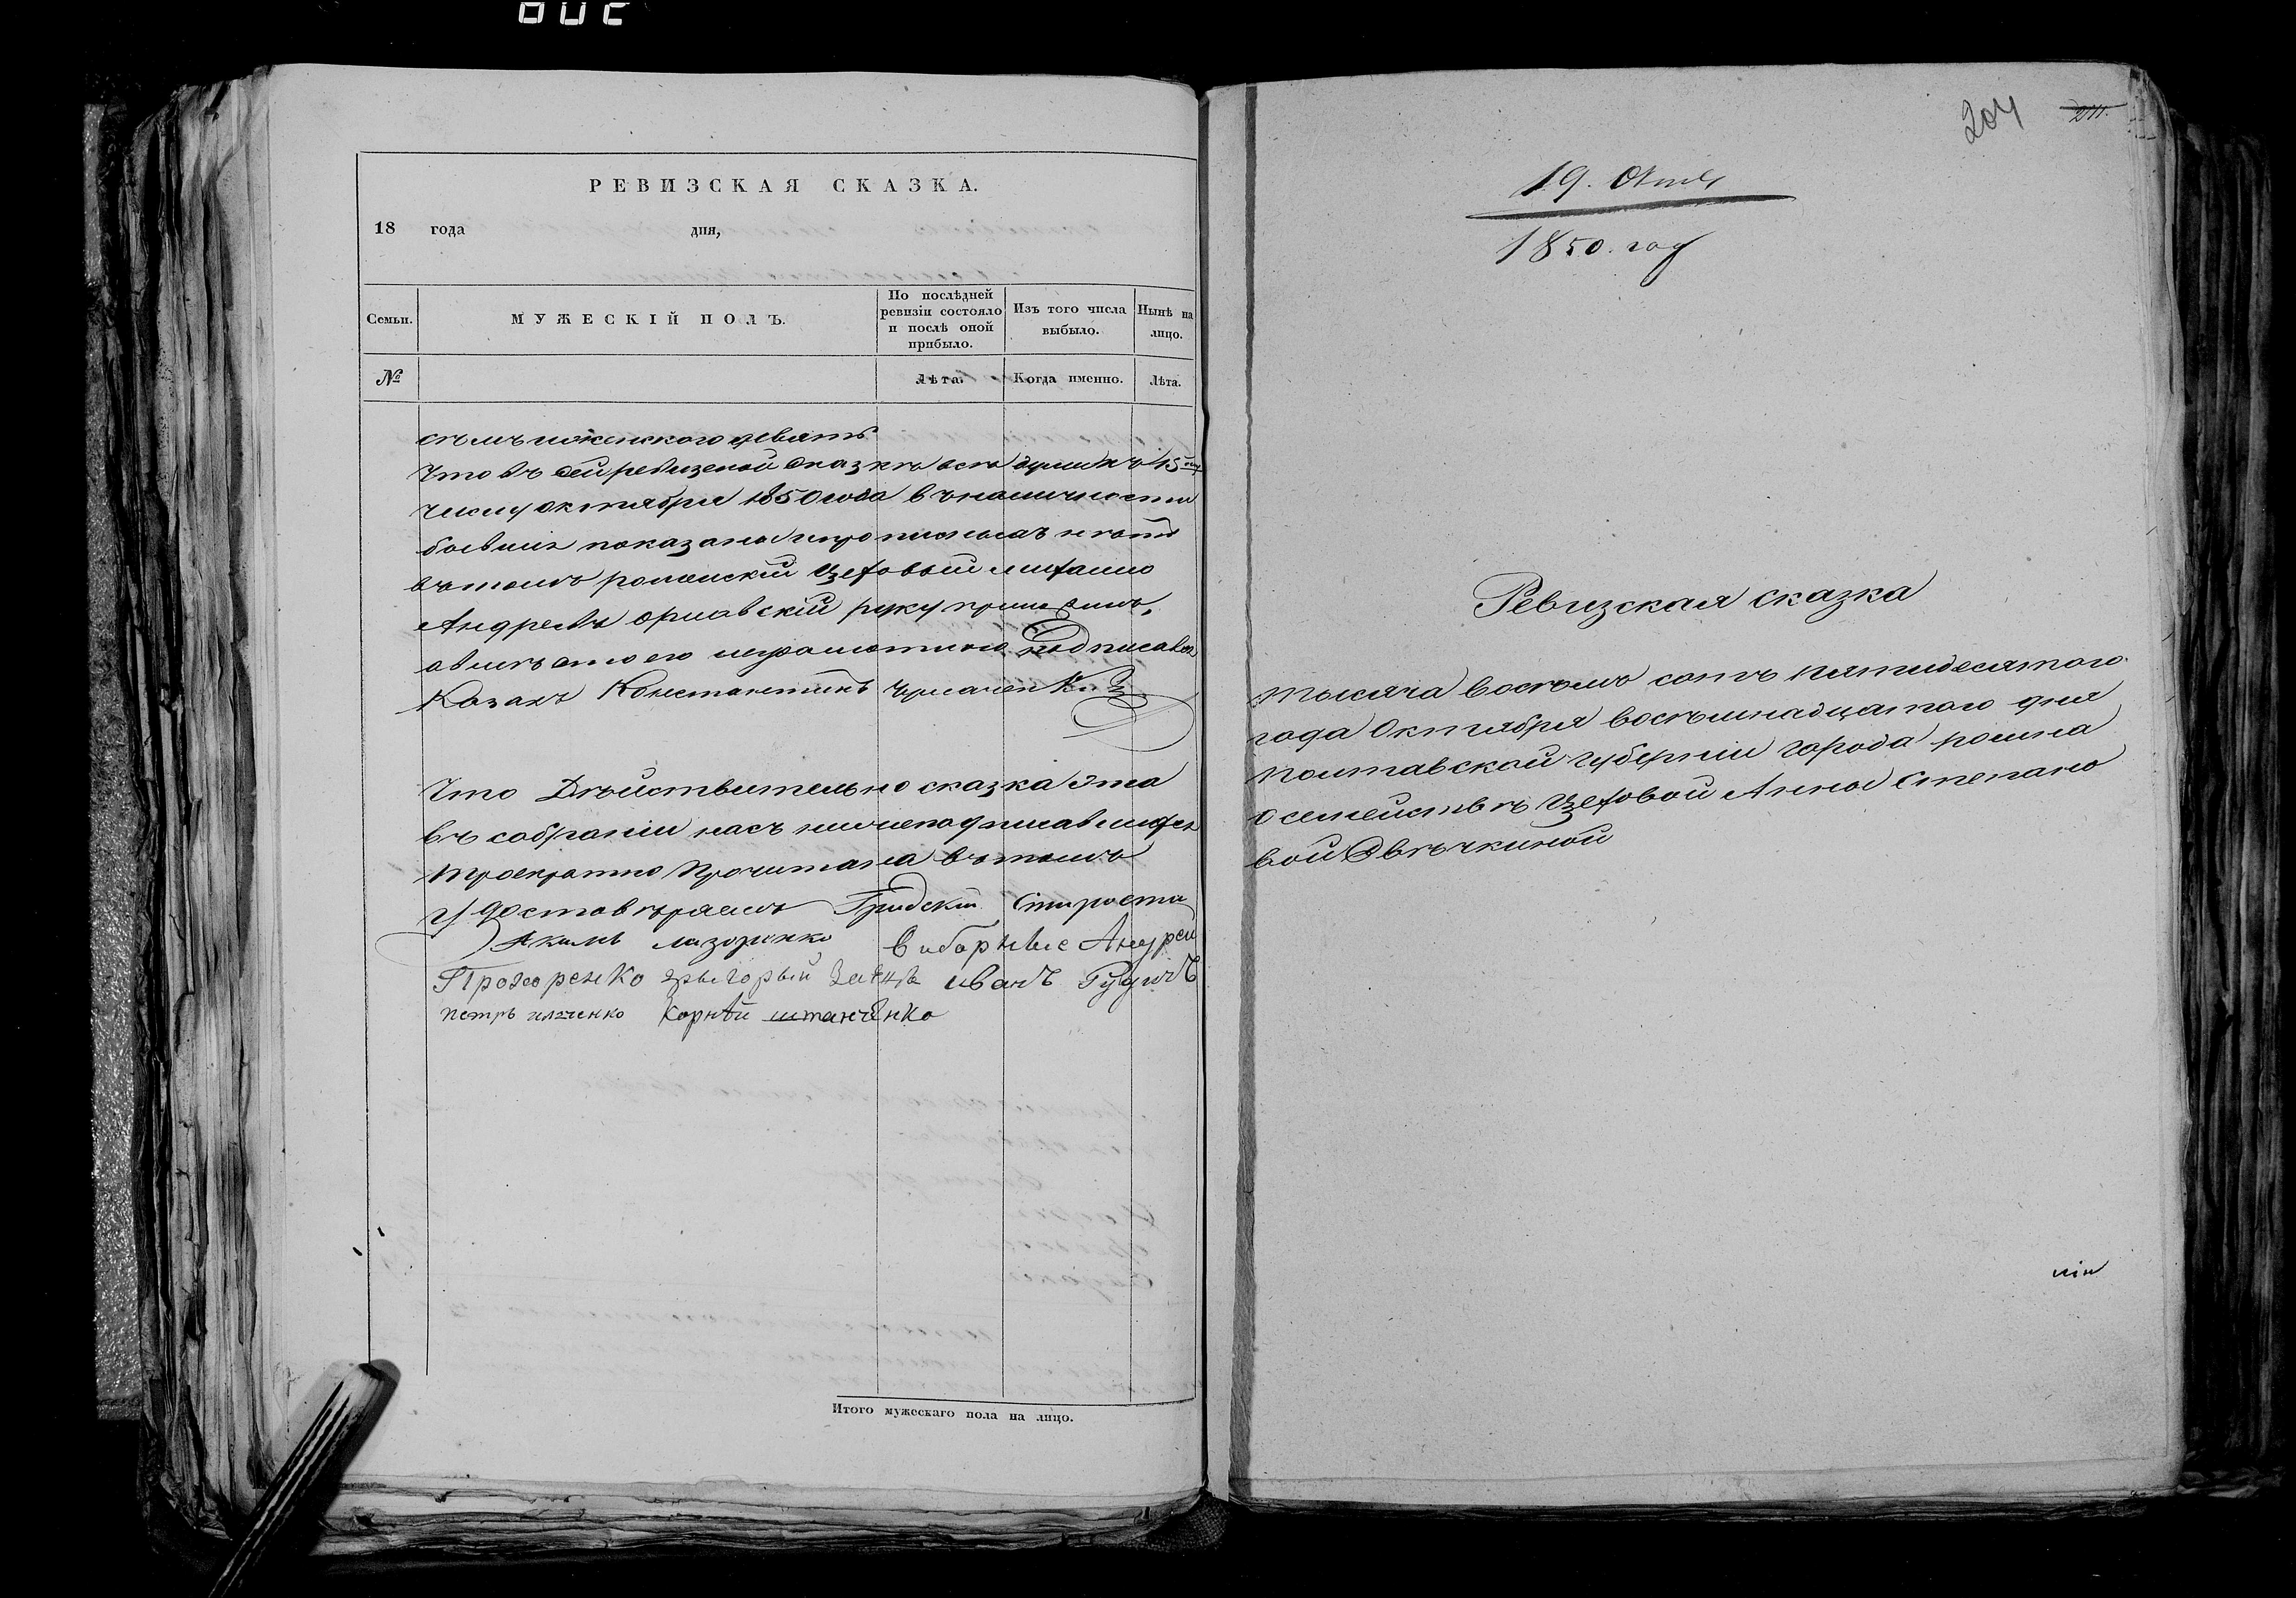 РЕВИЗСКАЯ СКАЗКА.
18 года дня,
Семьи.
МУЖЕСКІЙ ПОЛЪ.
По послѣдней ревизіи состояло и послѣ оной прибыло.
Изъ того числа выбыло.
Нынѣ на лицо.
№
Лѣта.
Когда именно.
Лѣта.
женского девять
Что въ сей ревизской сказкѣ всѣ души къ 15
числу октября 1850 года въ наличности
показаны и прописныхъ нѣтъ
въ томъ роменскій Цеховый
Андреевъ руку приложилъ,
а вмѣсто его неграмотного подписался
Козакъ Константинъ
Что Дѣйствительно сказка эта
въ собраніи насъ нижеподписавшихся
троекратно прочитана въ томъ
удостовѣряемъ Градскій Староста
Акимъ лазоренко выборные Андрей
Прохоренко иванъ
петръ корнѣй
Итого мужескаго пола на лицо.
204
211.
19. Октяб
1850. год
Ревизская сказка
тысяча восемь сотъ пятидесятого
года Октября восемнадцатого дня
Полтавской губерніи города ромна
о семействѣ Цеховой Анны Степано
вой Овѣчкиной